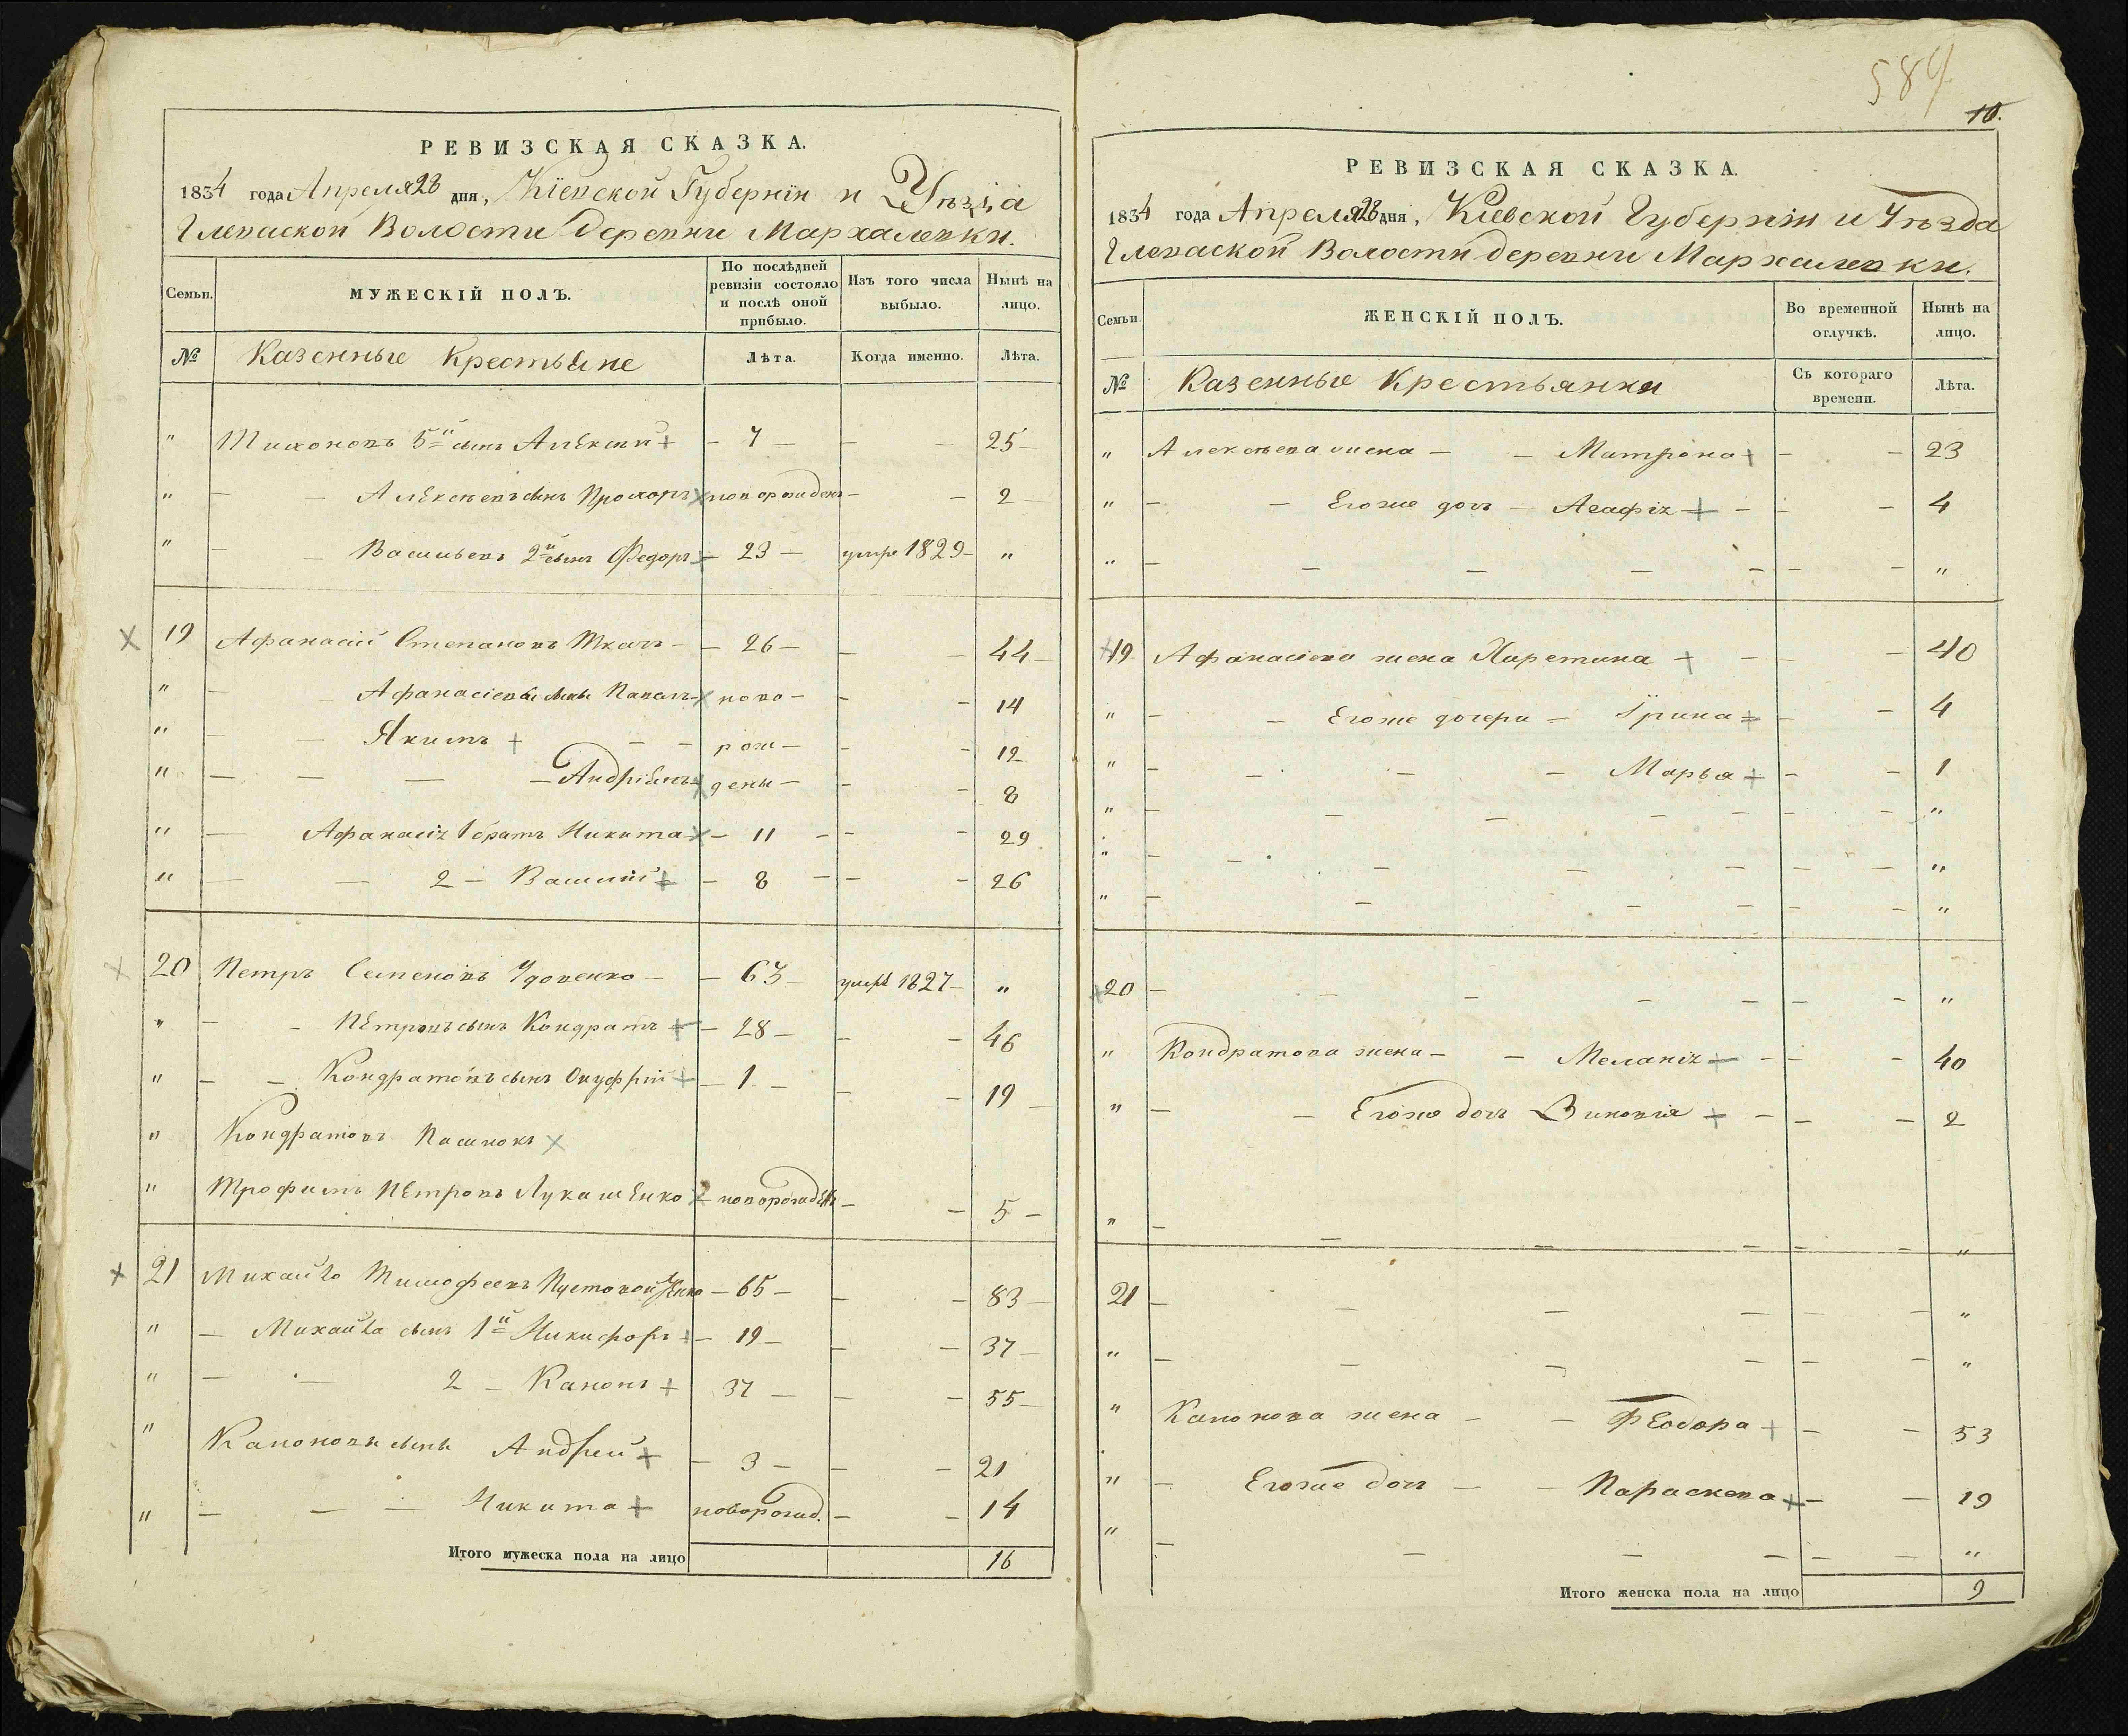 РЕВИЗСКАЯ СКАЗКА.
1834 года Апреля 28 дня, Кіевской Губерніи и Уѣзда
Глеваской Волости деревни Мархалевки.
Семьи. МУЖЕСКІЙ ПОЛЪ. По послѣдней ревизіи состояло и послѣ оной прибыло. Изъ того числа выбыло. Нынѣ на лицо.
№ Казенные Крестьяне Лѣта. Когда именно. Лѣта.
" Тихоновъ 5й сынъ Алексѣй + - 7 - - - 25 -
" - - Алексѣевъ сынъ Прохоръ × новорожденъ - - 2
" - - Васильевъ 2й сынъ Федоръ × - 23 - умре 1829 - "
× 19 Афанасій Степановъ Ткачъ - - 26 - - - 44 -
" - - Афанасіевы сыны Павелъ × ново - - - 14
" - - Якимъ + - - рож - - - 12
" - - - - Андріянъ × дены - - - 8
" - Афанасія 1 братъ Никита × - 11 - - - 29
" - - 2 - Василій + - 8 - - - 26
× 20 Петръ Семеновъ Удовенко - - 63 - умре 1827 - "
" - - Петровъ сынъ Кондратъ + - 28 - - - 46
" - - Кондратовъ сынъ Онуфрій + - 1 - - - 19 -
" Кондратовъ Пасинокъ ×
" Трофимъ Петровъ Лукашенко × новорожденъ - - 5 -
+ 21 Михайло Тимофеевъ Пустовойтенко - 65 - - - 83 -
" - Михайла сынъ 1й Никифоръ + - 19 - - - 37 -
" - - 2 - Канонъ + 37 - - - 55 -
" Каноновы сыны Андрей + - 3 - - - 21
" - - - Никита + новорожд. - - 14
Итого мужеска пола на лицо 16
584
10.
РЕВИЗСКАЯ СКАЗКА.
1834 года Апреля 28 дня, Кіевской Губерніи и Уѣзда
Глеваской Волости деревни Мархалевки.
Семьи. ЖЕНСКІЙ ПОЛЪ. Во временной отлучкѣ. Нынѣ на лицо.
№ Казенные Крестьянки Съ котораго времени. Лѣта.
" Алексѣева жена - - Матрона + - - 23
" - - Егоже дочь - Агафія + - - - 4
" - - - - - - - "
× 19 Афанасіева жена Харетина + - - - 40
" - - Егоже дочери - Ірина + - - 4
" - - - - Марья + - - 1
" - - - - - - - "
" - - - - - - - "
" - - - - - - "
× 20 - - - - - - - "
" Кондратова жена - - Меланія + - - - 40
" - - Егоже дочь + - - - 2
" - - - - - - "
21 - - - - - - "
" - - - - - - "
" Канонова жена - - Феодора + - - 53
" - Егоже дочь - - Параскева + - - 19
" - - - - - - "
Итого женска пола на лицо 9